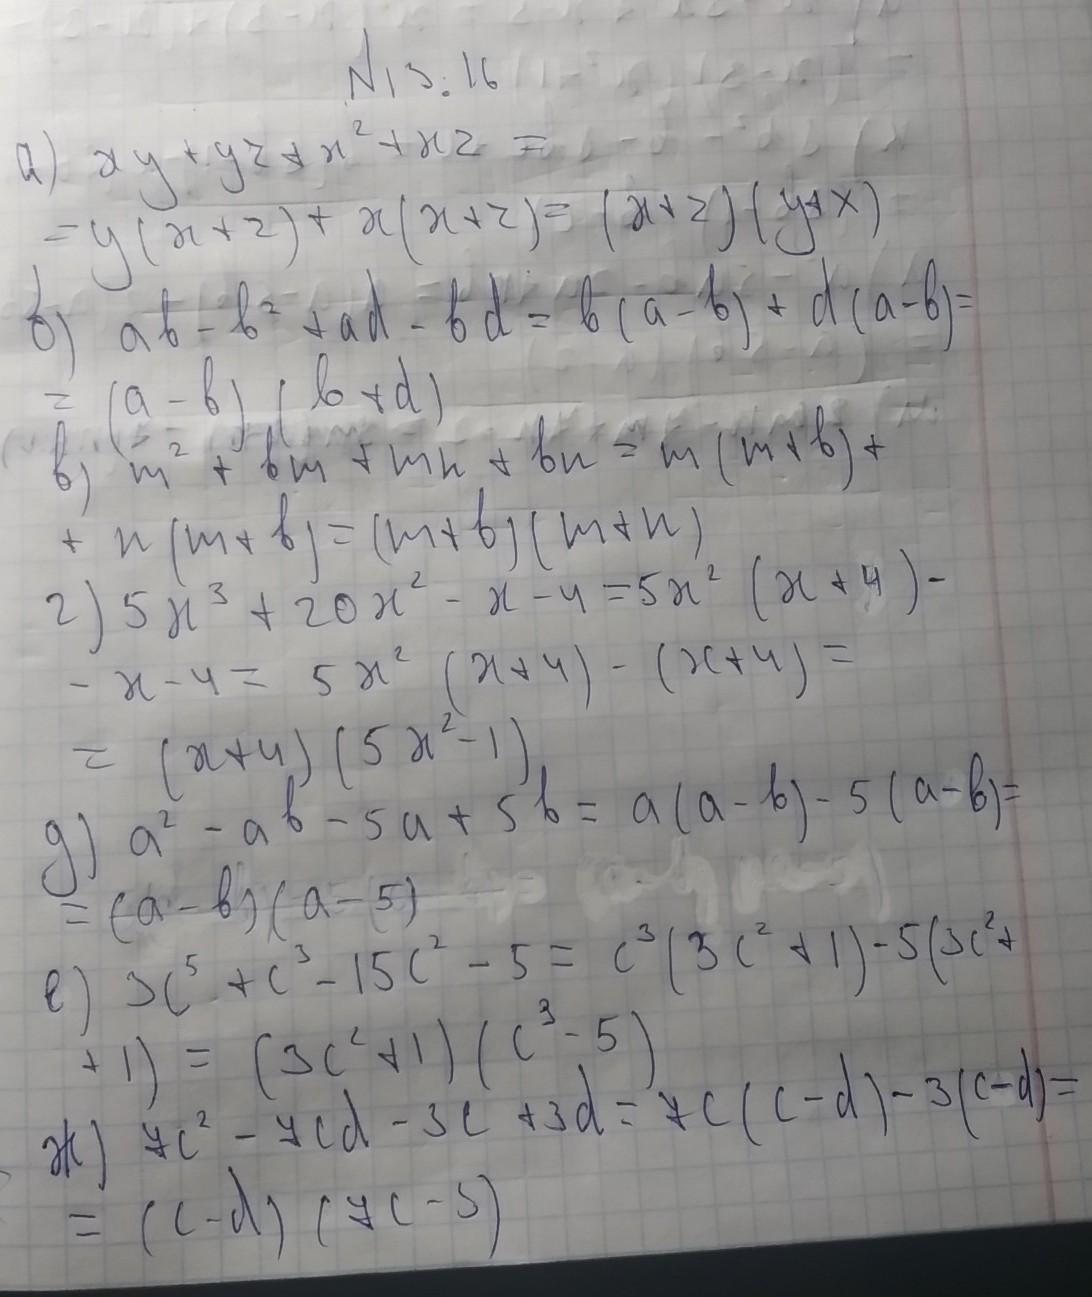 N13.16
а) xy+yz+x²+xz=
=y(x+z)+x(x+z)=(x+z)(y+x)
б) ab-b²+ad-bd=b(a-b)+d(a-b)=
=(a-b)(b+d)
в) m²+bm+mn+bn=m(m+b)+
+n(m+b)=(m+b)(m+n)
г) 5x³+20x²-x-4=5x²(x+4)-
-x-4=5x²(x+4)-(x+4)=
=(x+4)(5x²-1)
д) a²-ab-5a+5b=a(a-b)-5(a-b)=
=(a-b)(a-5)
е) 3c⁵+c³-15c²-5=c³(3c²+1)-5(3c²+
+1)=(3c²+1)(c³-5)
ж) 7c²-7cd-3c+3d=7c(c-d)-3(c-d)=
=(c-d)(7c-3)